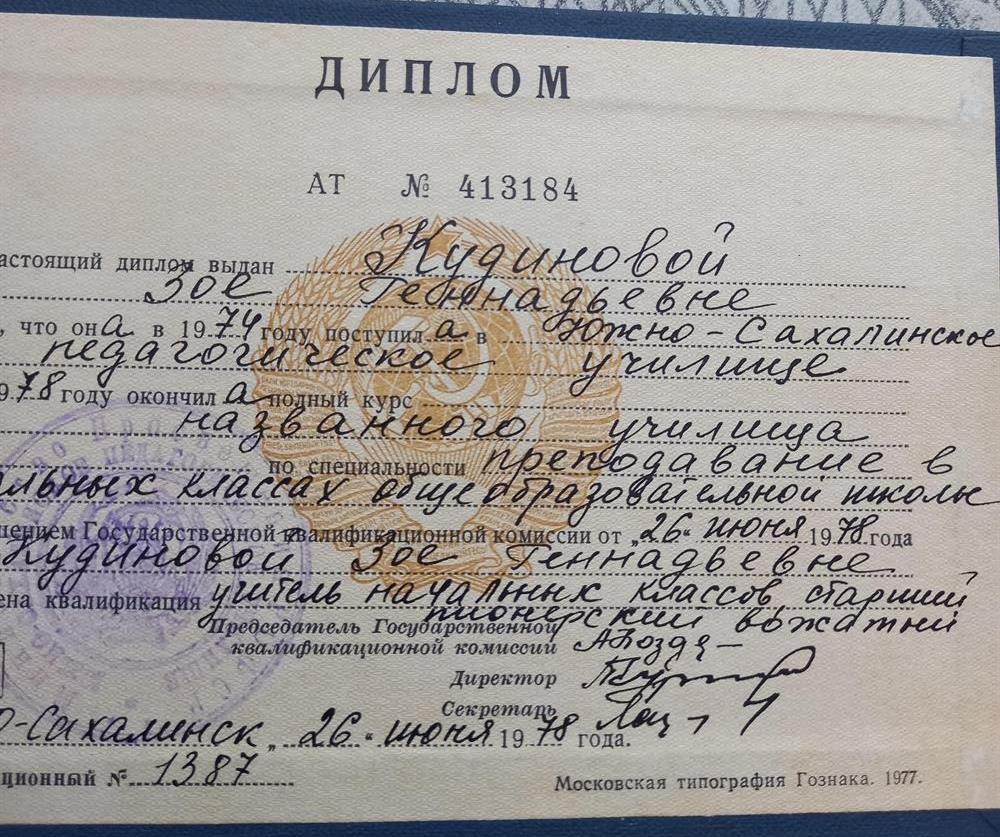 ДИПЛОМ
АТ № 413184
астоящий диплом выдан Кудиновой
Зое Геннадьевне
, что она в 1974 году поступила в Южно-Сахалинское
педагогическое училище
978 году окончила полный курс
названного училища
по специальности преподавание в
альных классах общеобразовательной школы
шением Государственной квалификационной комиссии от „26" июня 1978 года
Кудиновой Зое Геннадьевне
ена квалификация учитель начальных классов старший
пионерский вожатый
Председатель Государственной
квалификационной комиссии
Директор
Секретарь
о-Сахалинск „26" июня 1978 года.
ционный № 1387
Московская типография Гознака. 1977.